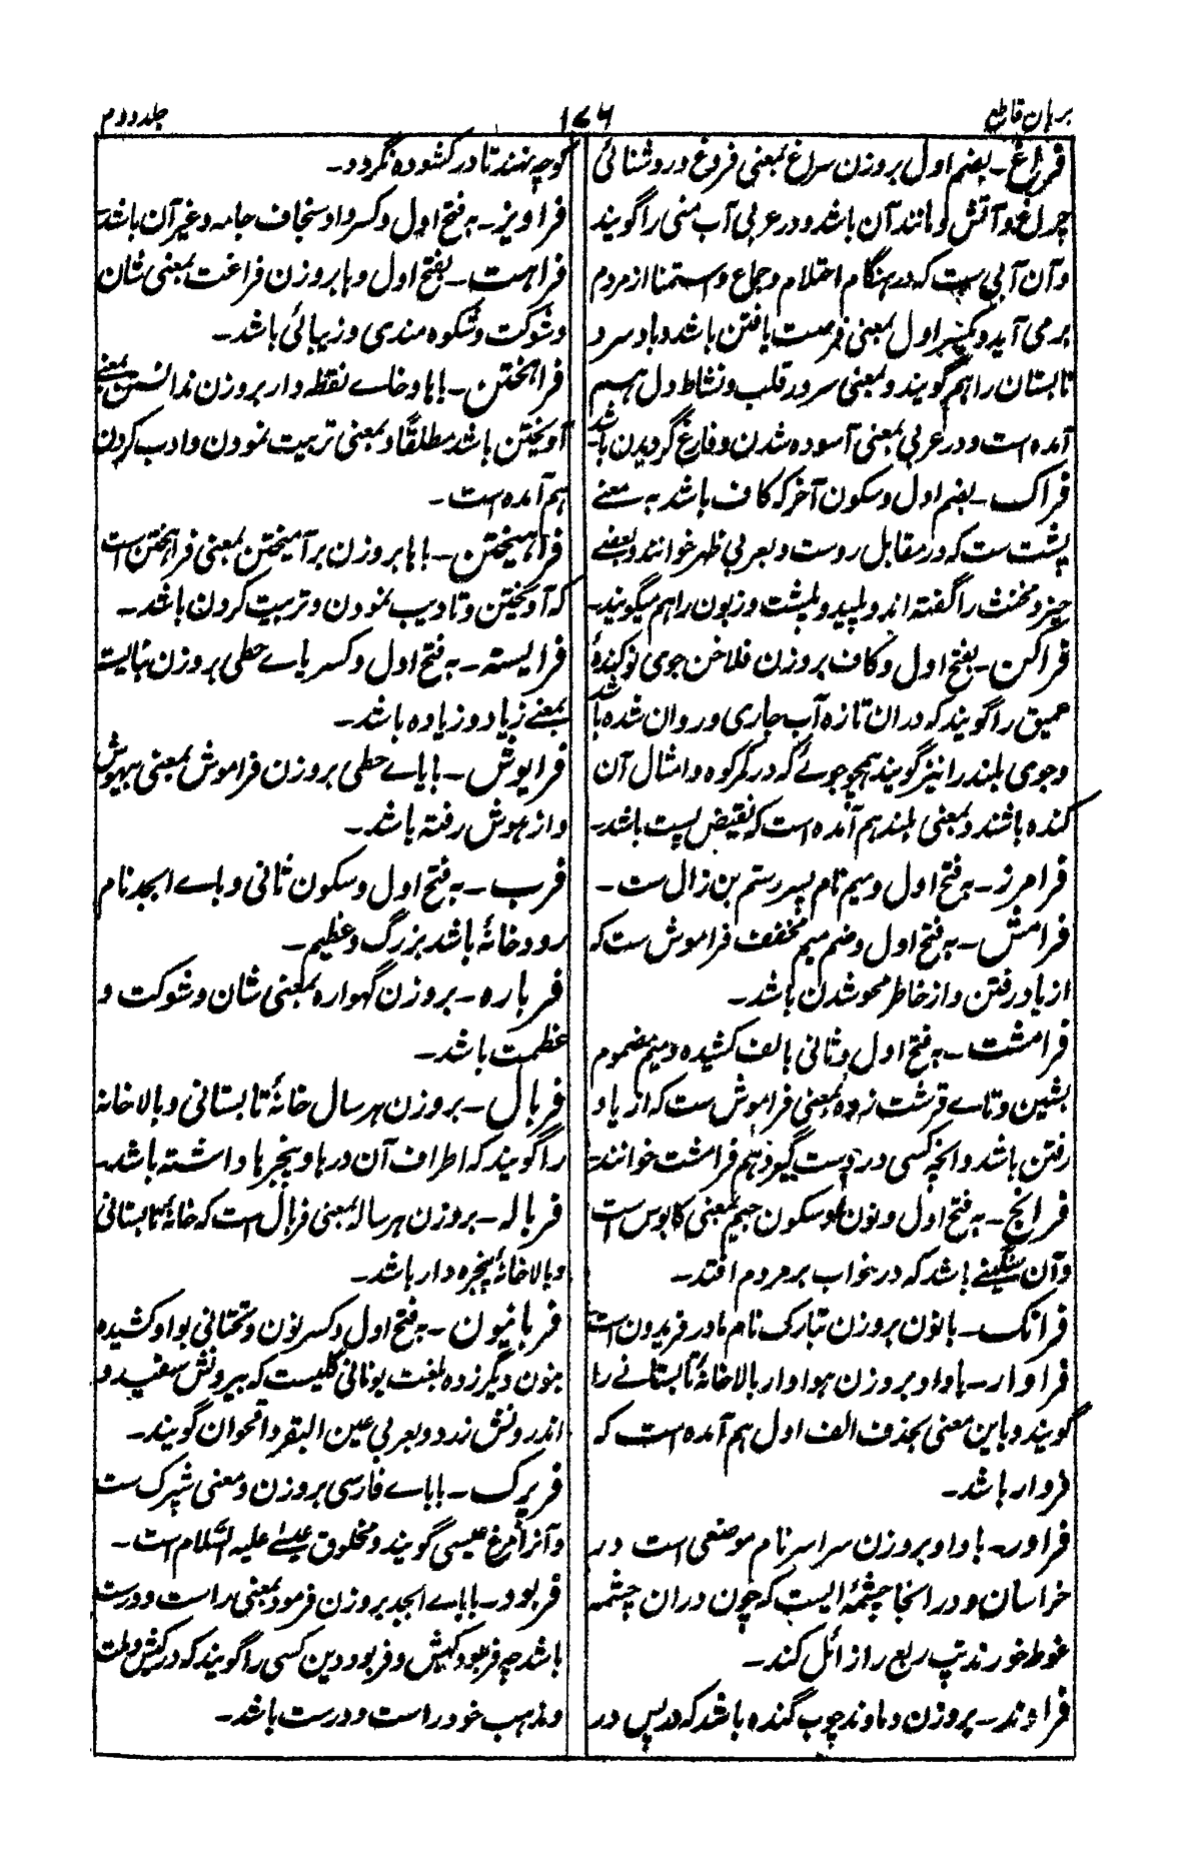 برہان قاطع
۱۷۶
جلد دوم
فراغ۔ بضم اول بروزن سراغ بمعنی فروغ و روشنائی
چراغ و آتش و مانند آن باشد و در عربی آب منی را گویند
و آن آبی ست کہ در ہنگام احتلام و جماع و استمنا از مردم
برمی آید و بکسر اول بمعنی فرصت یافتن باشد و باد سرد
تابستان را ہم گویند و بمعنی سرور قلب و نشاط دل ہم
آمدہ است و در عربی بمعنی آسودہ شدن و فارغ گردیدن باشد
فراک۔ بضم اول و سکون آخر کہ کاف باشد بہ معنے
پشت ست کہ در مقابل روست و بعربی ظہر خوانند و بعضے
حیز و مخنث را گفتہ اند و پلید و پلشت و زبون را ہم میگویند۔
فراکن۔ بفتح اول و کاف بروزن فلاخن جوی نو کندۂ
عمیق را گویند کہ دران تازہ آب جاری و روان شدہ باشد
و جوی بلند را نیز گویند ہمچو جوئے کہ در کمر کوہ و امثال آن
کندہ باشند و بمعنی بلند ہم آمدہ است کہ نقیض پست باشد۔
فرامرز۔ بہ فتح اول و میم نام پسر رستم بن زال ست۔
فرامش۔ بہ فتح اول و ضم میم مخفف فراموش ست کہ
از یاد رفتن و از خاطر محو شدن باشد۔
فرامشت۔ بہ فتح اول و ثانی بالف کشیدہ و میم مضموم
بشین و تاے قرشت زدہ بمعنی فراموش ست کہ از یاد
رفتن باشد و انچہ کسی در دست گیرد ہم فرامشت خوانند۔
فرانج۔ بہ فتح اول و نون و سکون جیم بمعنی کابوس است
و آن سنگینے باشد کہ در خواب بر مردم افتد۔
فرانک۔ بانون بروزن تبارک نام مادر فریدون است
فراوار۔ با واو بروزن ہوادار بالاخانۂ تابستانے را
گویند و باین معنی بحذف الف اول ہم آمدہ است کہ
فروار باشد۔
فراور۔ با واو بروزن سراسر نام موضعی است در
خراسان و در انجا چشمۂ ایست کہ چون دران چشمہ
غوطہ خورند تپ ربع را زائل کند۔
فراوند۔ بروزن دماوند چوب گندہ باشد کہ در پس در
کوچہ نہند تا در کشودہ نگردد۔
فراویز۔ بہ فتح اول و کسر واو سنجاف جامہ و غیر آن باشد
فراہت۔ بفتح اول و ہا بروزن فراغت بمعنی شان
و شوکت و شکوہ مندی و زیبائی باشد۔
فراہختن۔ باہا و خاے نقطہ دار بروزن ندانستن بمعنے
آویختن باشد مطلقاً و بمعنی تربیت نمودن و ادب کردن
ہم آمدہ است۔
فراہیختن۔ باہا بروزن برآمیختن بمعنی فراہختن است
کہ آویختن و تادیب نمودن و تربیت کردن باشد۔
فرایستہ۔ بہ فتح اول و کسر یاے حطی بروزن نبایست
بمعنے زیاد و زیادہ باشد۔
فرایوش۔ با یاے حطی بروزن فراموش بمعنی بیہوش
و از ہوش رفتہ باشد۔
فرب۔ بہ فتح اول و سکون ثانی و باے ابجد نام
رودخانۂ باشد بزرگ و عظیم۔
فربارہ۔ بروزن گہوارہ بمعنی شان و شوکت و
عظمت باشد۔
فربال۔ بروزن ہرسال خانۂ تابستانی و بالاخانہ
را گویند کہ اطراف آن درہا و پنجرہا داشتہ باشد۔
فربالہ۔ بروزن ہرسالہ بمعنی فربال است کہ خانۂ تابستانی
و بالاخانۂ پنجرہ دار باشد۔
فربانیون۔ بہ فتح اول و کسر نون و تحتانی بواو کشیدہ
بنون دیگر زدہ بلغت یونانی گلیست کہ بیرونش سفید و
اندرونش زرد و بعربی عین البقر و اقحوان گویند۔
فرپرک۔ باباے فارسی بروزن و معنی شپرک ست
و آنرا مرغ عیسی گویند و مخلوق عیسےٰ علیہ السّلام است۔
فربود۔ باباے ابجد بروزن فرمود بمعنی راست و درست
باشد چہ فربود کیش و فربود دین کسی را گویند کہ در کیش و ملت
و مذہب خود راست و درست باشد۔